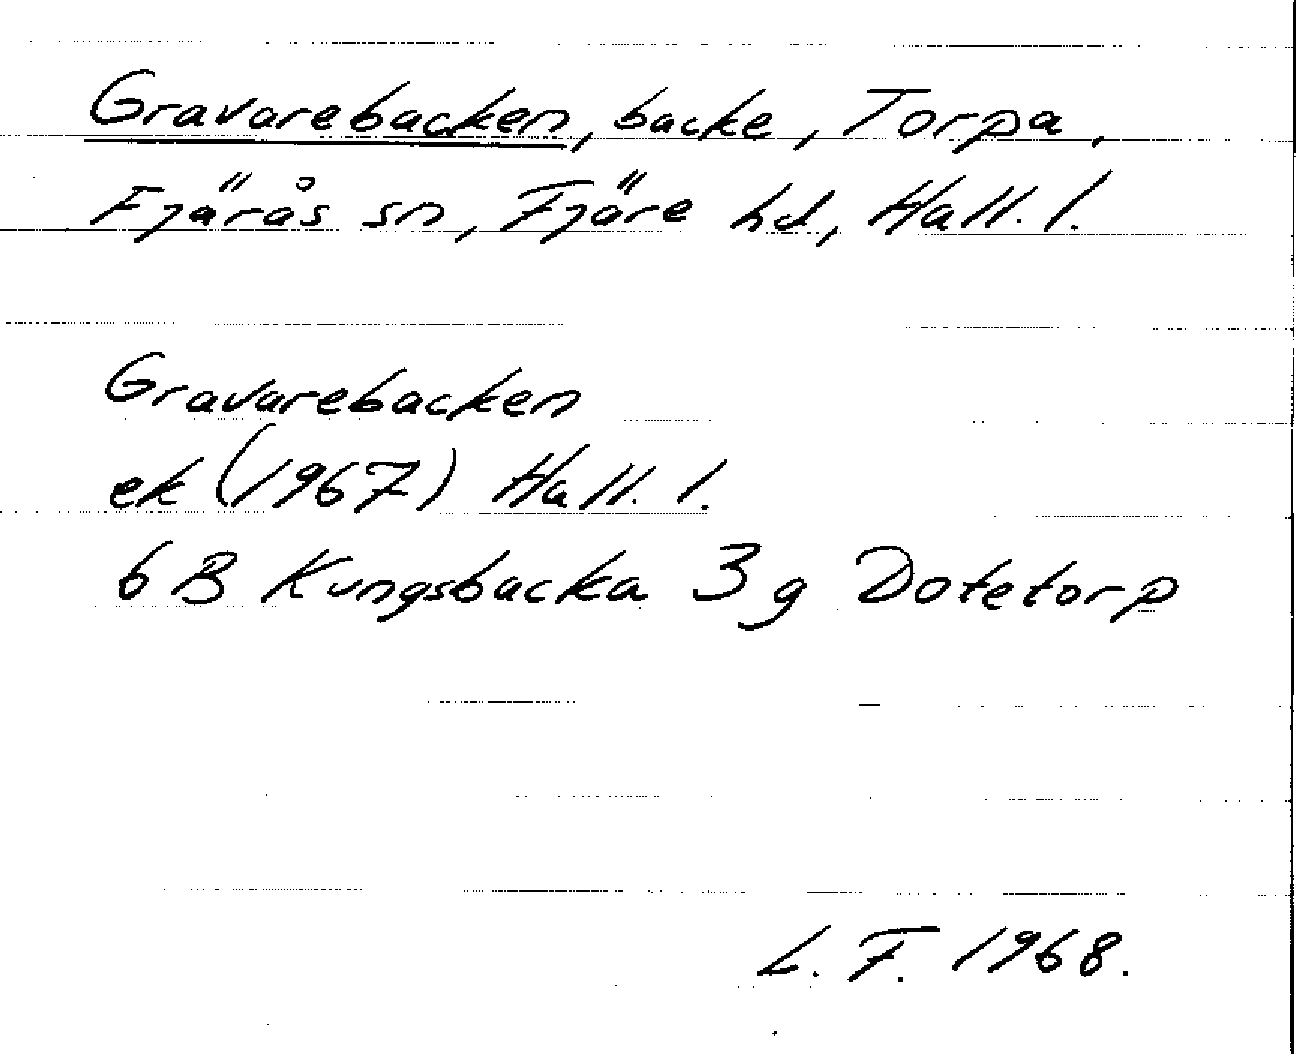 Gravarebacken, backe, Torpa,
Fjärås sn, Fjäre hd, Hall. l.
Gravarebacken
ek (1967) Hall. l.
6 B Kungsbacka 3 g Dotetorp
L. F. 1968.